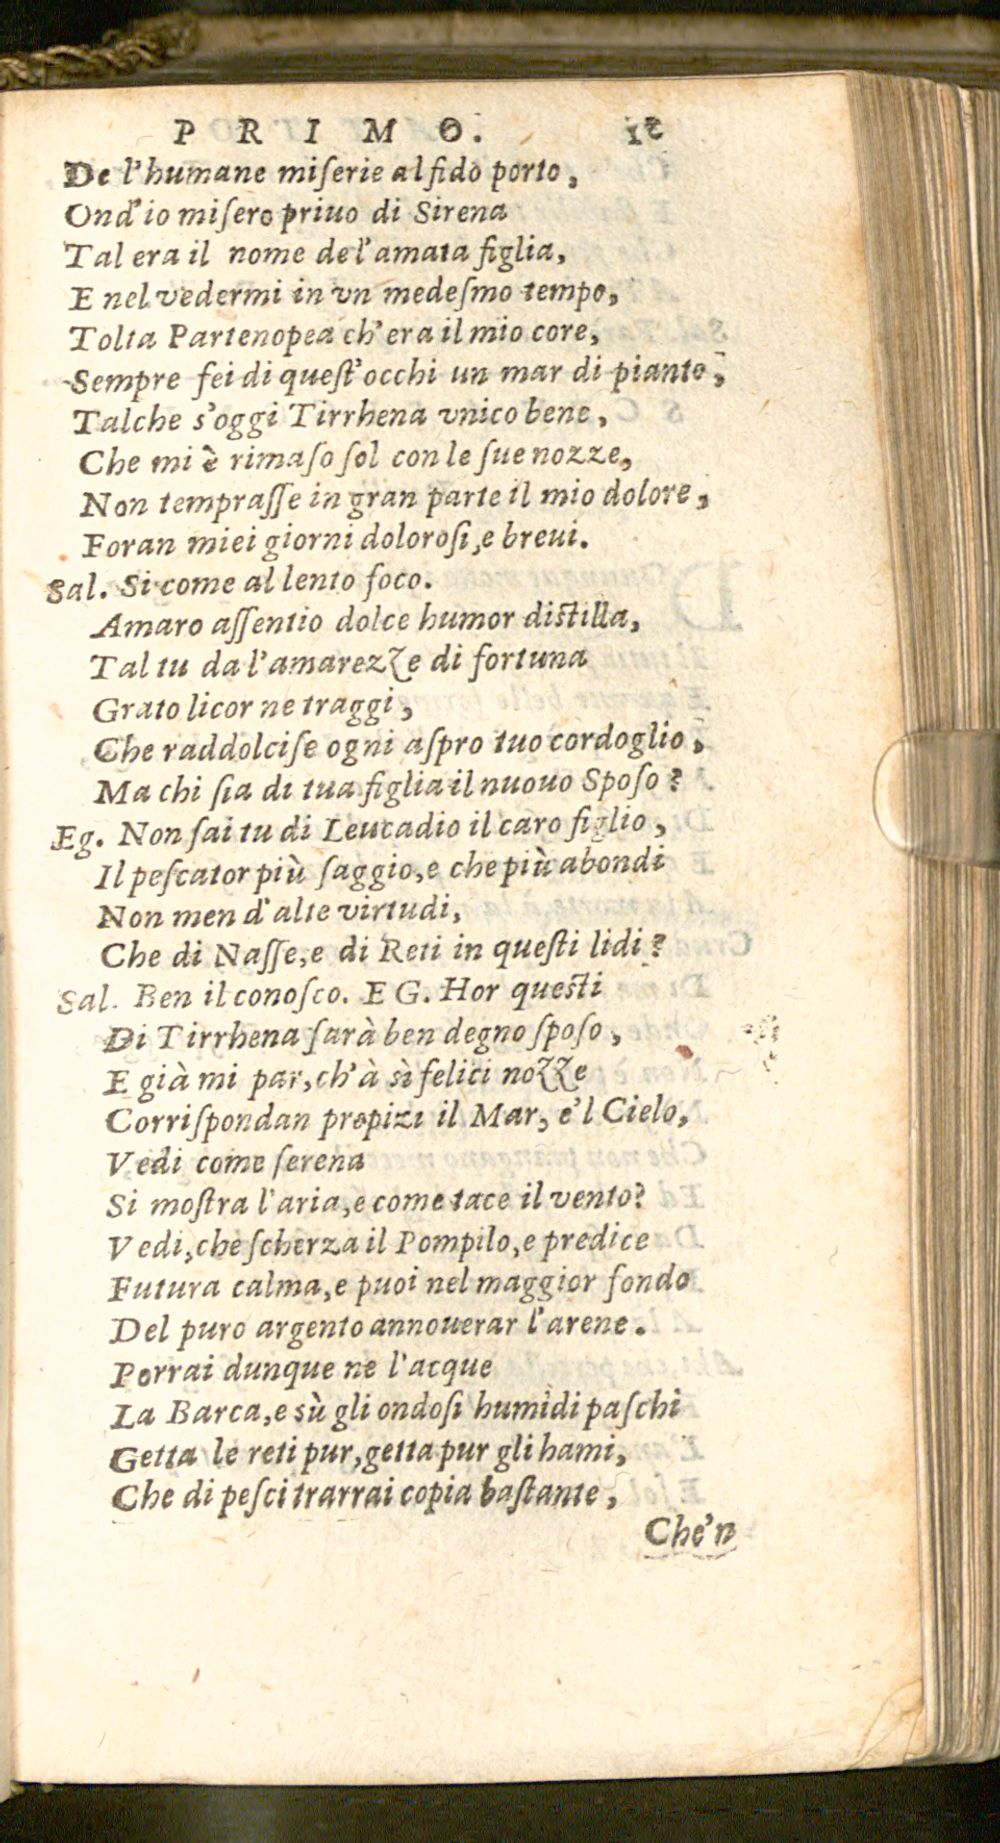 PRIMO. 15
De l'humane miſerie al fido porto,
Ond'io miſero priuo di Sirena
Tal era il nome de l'amata figlia,
E nel vedermi in vn medeſmo tempo,
Tolta Partenopea ch'era il mio core,
Sempre fei di queſt'occhi un mar di pianto,
Talche s'oggi Tirrhena vnico bene,
Che mi è rimaſo ſol con le ſue nozze,
Non tempraſſe in gran parte il mio dolore,
Foran miei giorni doloroſi, e breui.
Sal. Si come al lento foco.
Amaro aſſentio dolce humor diſtilla,
Tal tu da l'amarezze di fortuna
Grato licor ne traggi,
Che raddolciſe ogni aſpro tuo cordoglio,
Ma chi ſia di tua figlia il nuouo Spoſo?
Eg. Non ſai tu di Leucadio il caro figlio,
Il peſcator più ſaggio, e che più abondi
Non men d'alte virtudi,
Che di Naſſe, e di Reti in queſti lidi?
Sal. Ben il conoſco. EG. Hor queſti
Di Tirrhena ſarà ben degno ſpoſo,
E già mi par, ch'à sì felici nozze
Corriſpondan propizi il Mar, e'l Cielo,
Vedi come ſerena
Si moſtra l'aria, e come tace il vento?
Vedi, che ſcherza il Pompilo, e predice
Futura calma, e puoi nel maggior fondo
Del puro argento annouerar l'arene.
Porrai dunque ne l'acque
La Barca, e sù gli ondoſi humidi paſchi
Getta le reti pur, getta pur gli hami,
Che di peſci trarrai copia baſtante,
Che'n